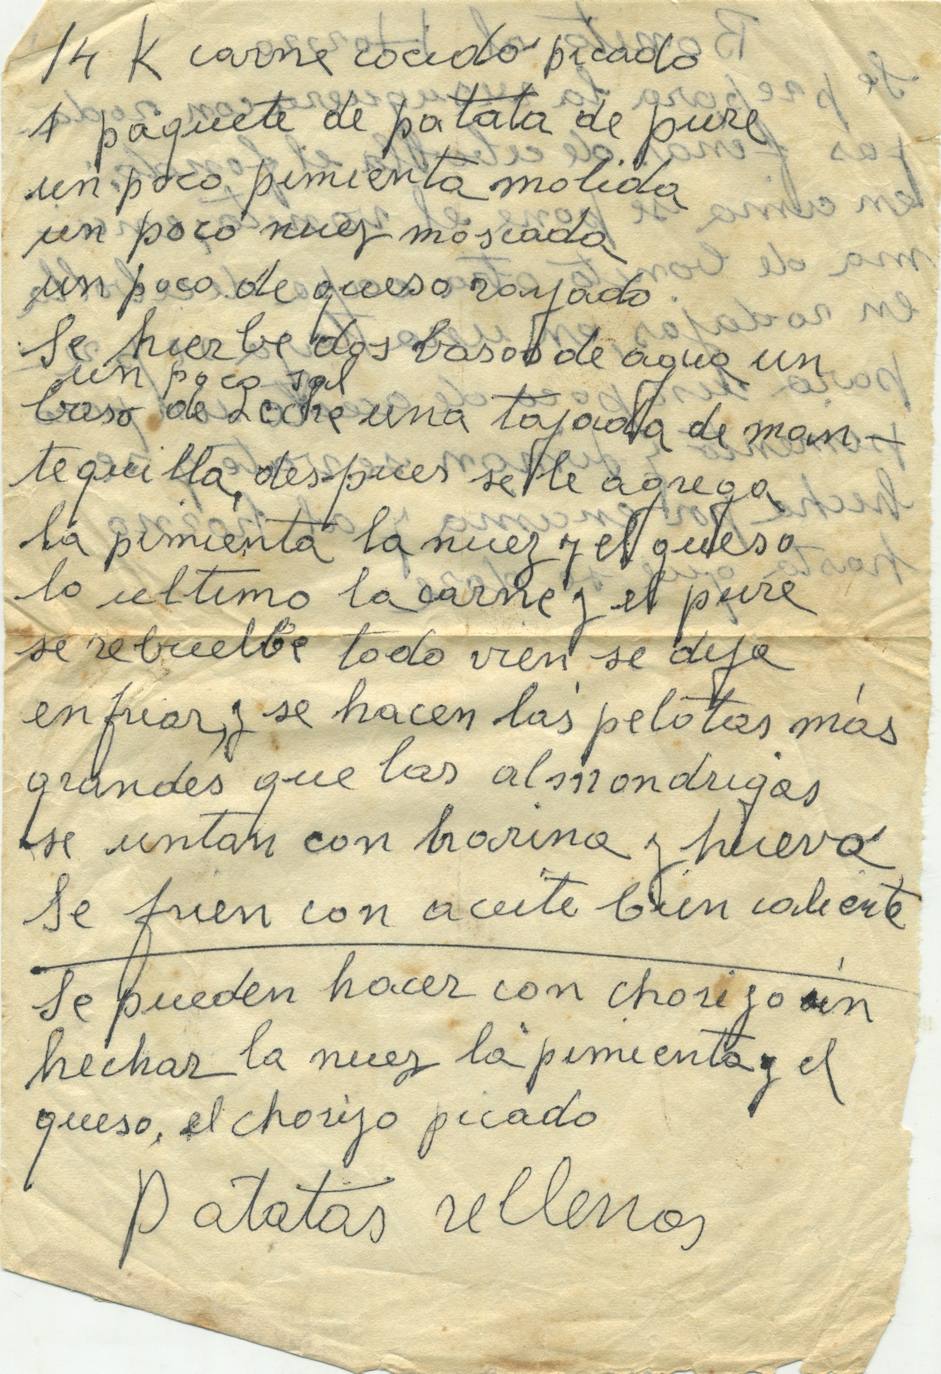 1/4 K carne cocido picado
1 paquete de patata de pure
un poco pimienta molida
un poco nuez moscada
un poco de queso rayado
Se hierbe dos basos de agua un
un poco sal
baso de Leche una tajada de man-
tequilla, despues se le agrega
la pimienta la nuez y el queso
lo ultimo la carne y el pure
se rebuelbe todo vien se deja
enfriar, y se hacen las pelotas más
grandes que las almondrigas
se untan con harina y huevo
Se frien con aceite bien caliente
Se pueden hacer con chorizo sin
hechar la nuez la pimienta y el
queso, el chorizo picado
Patatas rellenas